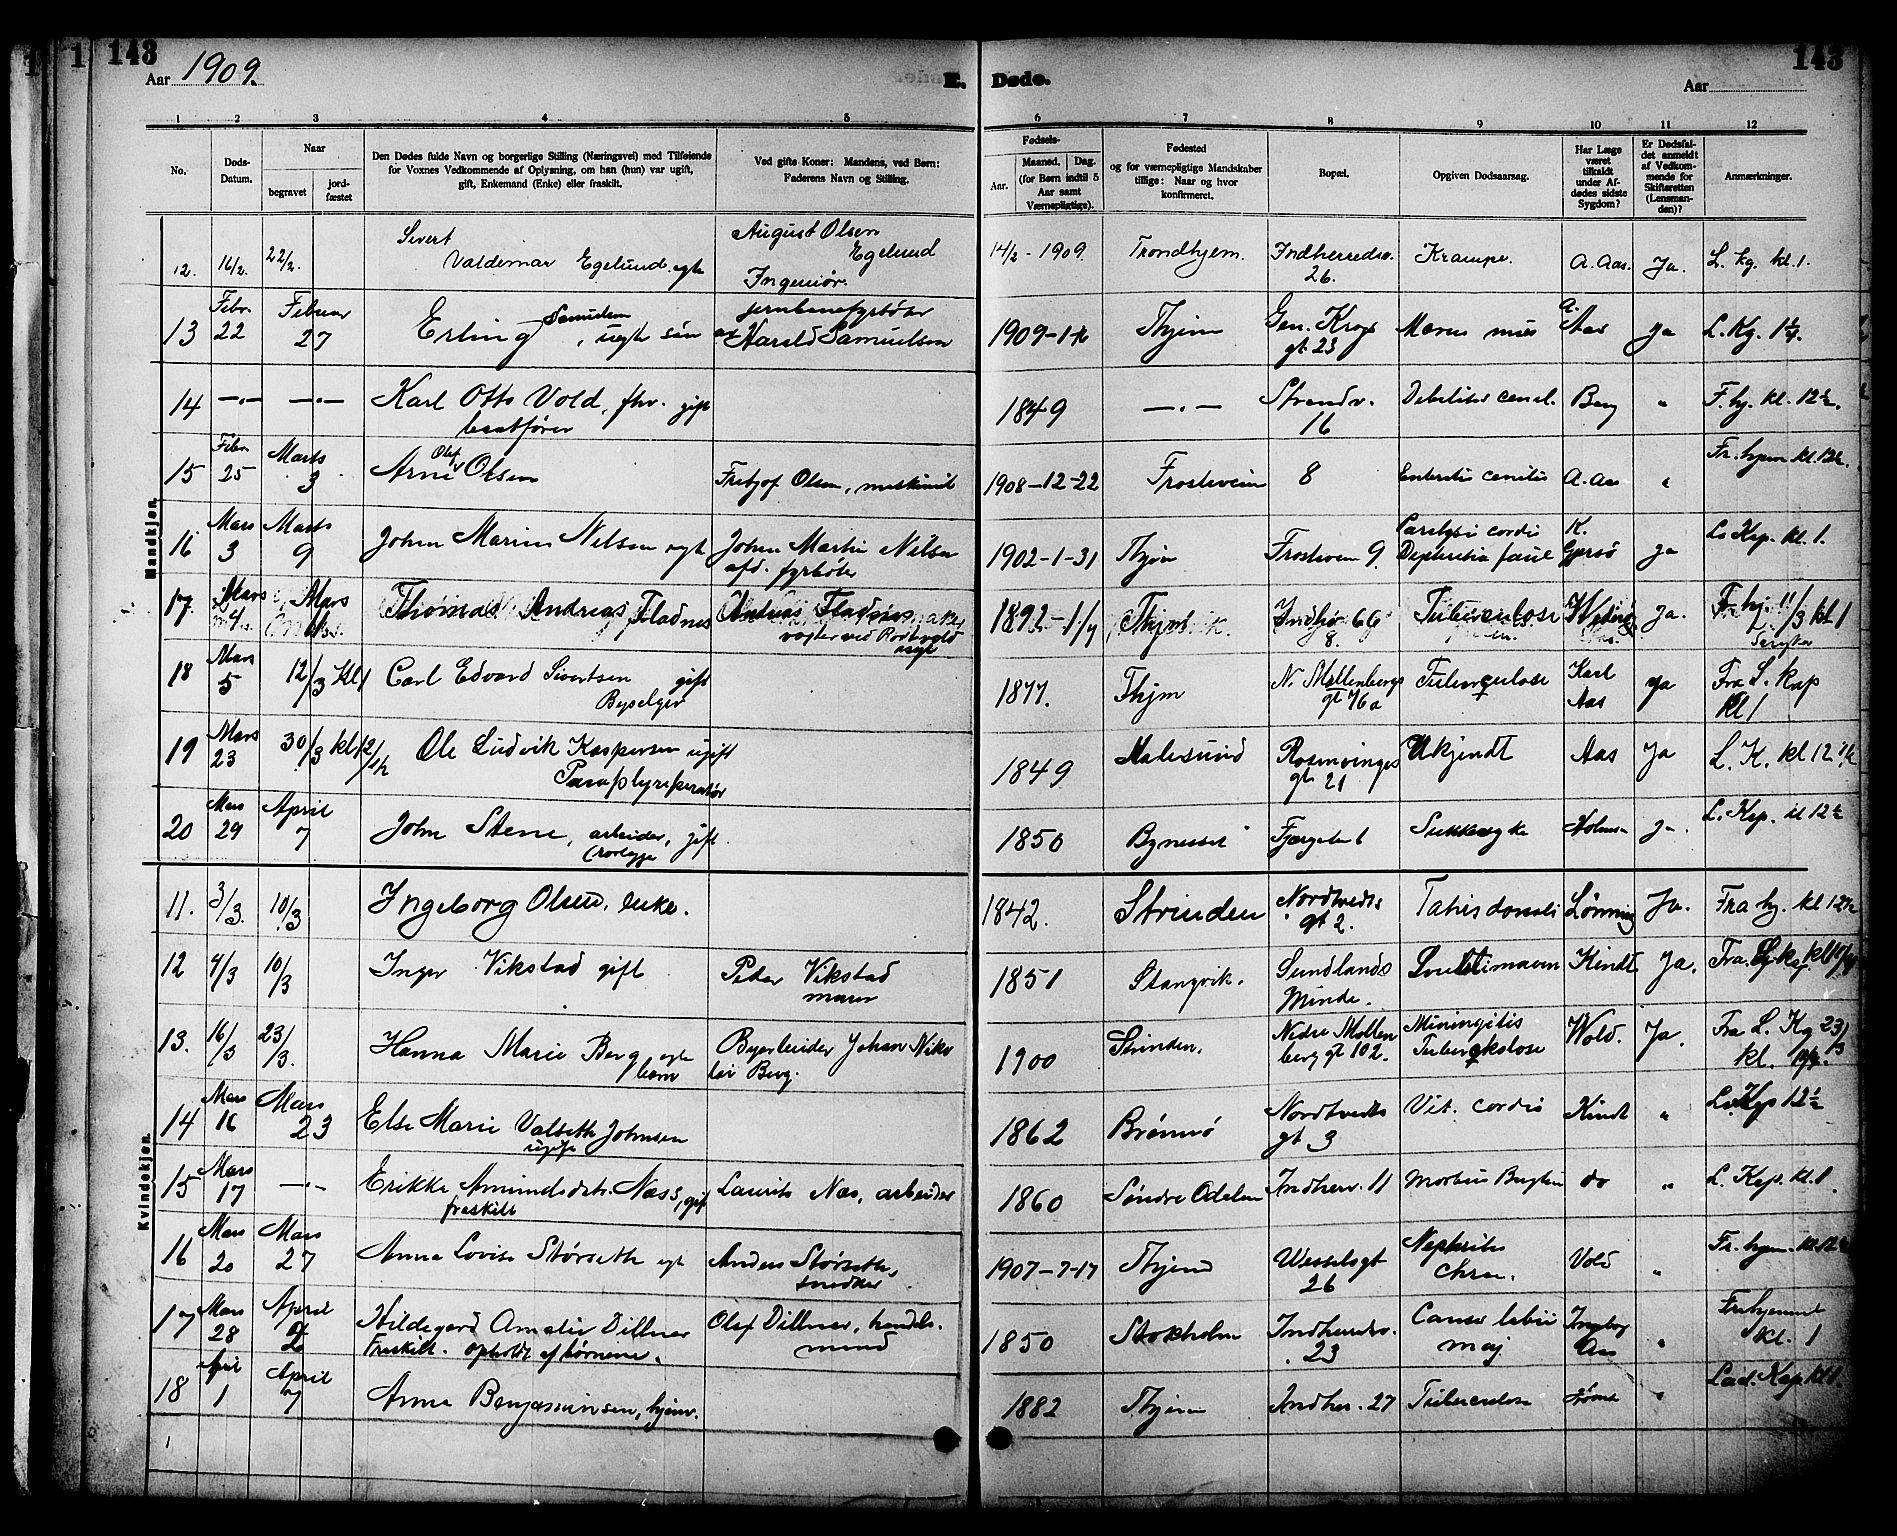 143
Aar 1909.
E.
Døde.
143
Aar
1 2 3 4 5 6 7 8 9 10 11 12
No.
Døds-Datum.
Naar
begravet
jord-fæstet
Den Dødes fulde Navn og borgerlige Stilling (Næringsvei) med Tilføiende
for Voxnes Vedkommende af Oplysning, om han (hun) var ugift,
gift, Enkemand (Enke) eller fraskilt.
Ved gifte Koner: Mandens, ved Børn:
Faderens Navn og Stilling.
Fødsels-
Aar.
Maaned. Dag.
(for Børn indtil 5
Aar samt
Værnepligtige).
Fødested
og for værnepligtige Mandskaber
tillige: Naar og hvor
konfirmeret.
Bopæl.
Opgiven Dødsaarsag.
Har Læge
været
tilkaldt
under Af-
dødes sidste
Sygdom?
Er Dødsfal-
det anmeldt
af Vedkom-
mende for
Skifteretten
(Lensman-
den)?
Anmærkninger.
Mandkjøn.
12. 16/2. 22/2. Sivert Valdemar Egelund. egte August Olsen Egelund Ingeniør. 14/2 - 1909. Trondhjem. Indherredsv. 26. Krampe. A. Aas. Ja. L. kg. kl. 1.
13 Febr. 22 Februar 27 Erling Samuelsen, uegte søn av Harald Samuelsen 1909-1- Thjem Gen. Krogs gt. 23 a. Aas Ja L. Kg.
14 —.— —.— Karl Otto Vold, fhv. gift 1849 —.— Strandv. 16 Berg " F. hj. kl. 12½.
15 Febr. 25 Marts 3 Arne Olaf Olsen Fritjof Olsen, maskinist 1908-12-22 Frostevein 8 A. Aas "
16 Mars 3 Marts 9 Johan Marius Nilsen egt Johan Martin Nilsen afd. fyrbøter 1902-1-31 Thjem Frosteven 9. Paralysi cordis K. ja L. Kap. kl. 1.
17. Mars 4 Mars Thomas Andreas Fladnes 1892-1/4 Thjem 8. Tuberculose Ja. Fr. hj. 11/3 kl 1
18 Mars 5 12/3 kl 1 Carl Edvard Sivertsen gift Byselger 1877. Thjm N. Møllenbergs gt 76a Tuberculose Karl Aas ja Fra L. Kap kl 1
19 Mars 23 30/3 kl 12 1/2 Ole Ludvik Kaspersen ugift Paraplyreperatør 1849 Aalesund Rosenvinges gt 21 Ukjendt Aas Ja L. K. kl 12 1/2
20 Mars 29 April 7 John Stene, arbeider, gift. 1850 Bynesset Sukkersyke ja. L. Kap. kl 12½
Kvindekjøn.
11. 3/3. 10/3 Ingeborg Olsen, enke. 1842. Strinden Nordtvedts gt 2. Tabes dorsalis Lønning Ja. Fra hj. kl 12½
12 4/3 10/3 Inger Vikstad gift Peder Vikstad 1851 Stangvik. Sundlands Minde. Kindt Ja.
13. 16/3 23/3. Hanna Marie Berg, egte barn Byarbeider Johan Nikolai Berg. 1900 Strinden. Nedre Møllenberg gt 102. Miningitis Tuberkulose Wold. Ja. Fra L. Kg 23/3 kl.
14 Mars 16 Mars 23 Else Marie Valseth Johnsen ugift 1862 Brønnø Nordtvedts gt 3 Vit. cordis Kindt " L. Kap 12½
15 Mars 17 —.— Erikke Amundsdtr. Næss, gift fraskilt Laurits Næs, arbeider 1860 Søndre Odalen Indherr. 11 Morbus Brightii do " L. Kap. kl. 1
16 Mars 20 Mars 27 Anna Lovise Størseth egt Anders Størseth, snedker 1907-7-17 Thjem Wesselsgt 26 Nephritis chron. Vold " Fr. hjem. kl. 12½
17 Mars 28 April 2 Hildegard Amalie Dillner Fraskilt. opholdt af børnene. Olof Dillner, handelsmand 1850 Stokholm Indherredsv. 23 Cancer labii maj. Ingeborg Aas " Fr hjemmet kl. 1
18 April 1 April 7 Anna Benjaminsen, hjemv. 1882 Thjem Indher. 27 Tuberculose " Lad. Kap kl 1.